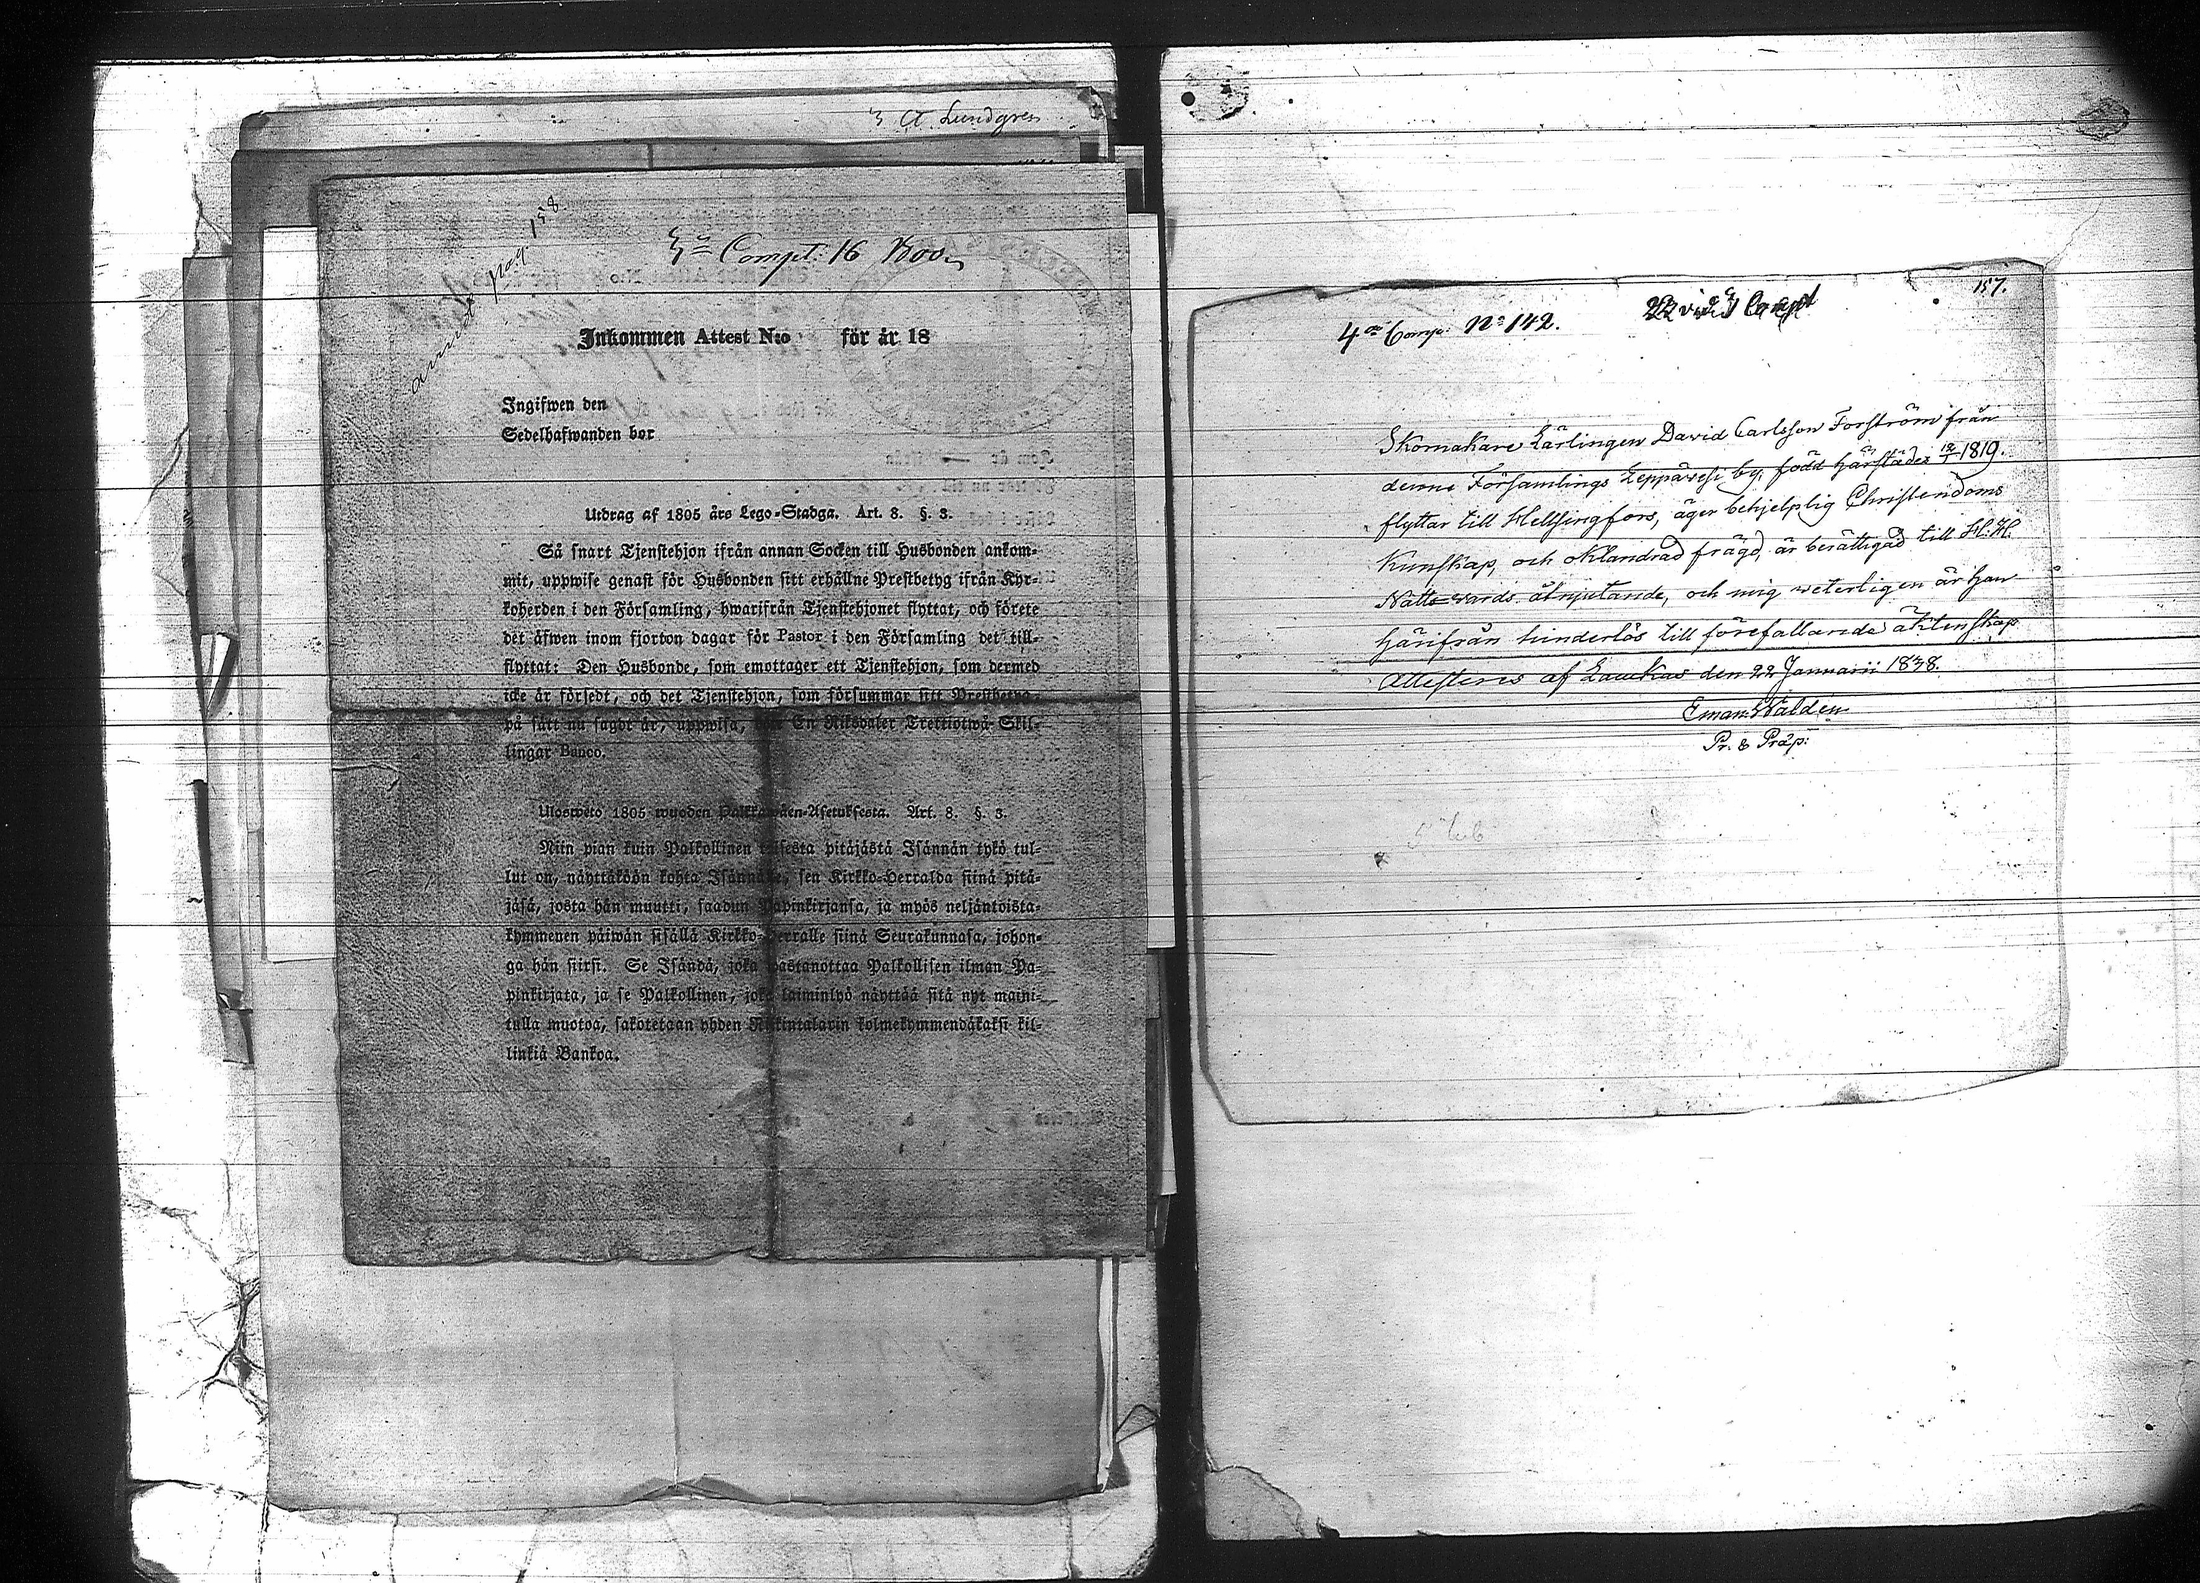 A. Lundgren
pag. 158
Compt: 16
Inkommen Attest N:o för år 18
Ingifwen den
Sedelhafwanden bor
Utdrag af 1805 års Lego-Stadga. Art. 8. §. 3.
Så snart Tjenstehjon ifrån annan Socken till Husbonden ankom-
mit, uppwise genast för Husbonden sitt erhållne Prestbetyg ifrån Kyr-
koherden i den Församling, hwarifrån Tjenstehjonet flyttat, och förete
det äfwen inom fjorton dagar för Pastor i den Församling det till-
flyttat: Den Husbonde, som emottager ett Tjenstehjon, som dermed
icke är försedt, och det Tjenstehjon, som försummar sitt Prestbetyg,
på sätt nu sagdt är, uppwisa, En Riksdaler Trettiotwå Skil-
lingar Banco.
Ulosweto 1805 wuoden Palkkawäen-Asetuksesta. Art. 8. §. 3.
Niin pian kuin Palkollinen toisesta pitäjästä Isännän tykö tul-
lut on, näyttäköön kohta Isännälle, sen Kirkko-Herralda siinä pitä-
jäsä, josta hän muutti, saadun Papinkirjansa, ja myös neljäntoista-
kymmenen päiwän sisällä Kirkko-Herralle siinä Seurakunnasa, johon-
ga hän siirsi. Se Isändä, joka wastanottaa Palkollisen ilman Pa-
pinkirjata, ja se Palkollinen, joka laiminlyö näyttää sitä nyt maini-
tulla muotoa, sakotetaan yhden Riksintalarin kolmekymmendäkaksi kil-
linkiä Bankoa.
157.
4de Comp: No 142.
Skomakare Lärlingen David Carlsson Forström från
denne Församlings Leppävesi by, född härstädes 12/1 1819.
flyttar till Helsingfors, äger behjelplig Christendoms
Kunskap, och oklandrad frägd, är berättigad till H. H.
Nattwards åtnjutande, och mig veterligen är han
härifrån hinderlös till förefallande äktenskap
Attesteres af Laukas den 22 Januarii 1838.
Eman: Walden
Pr. & Präp: